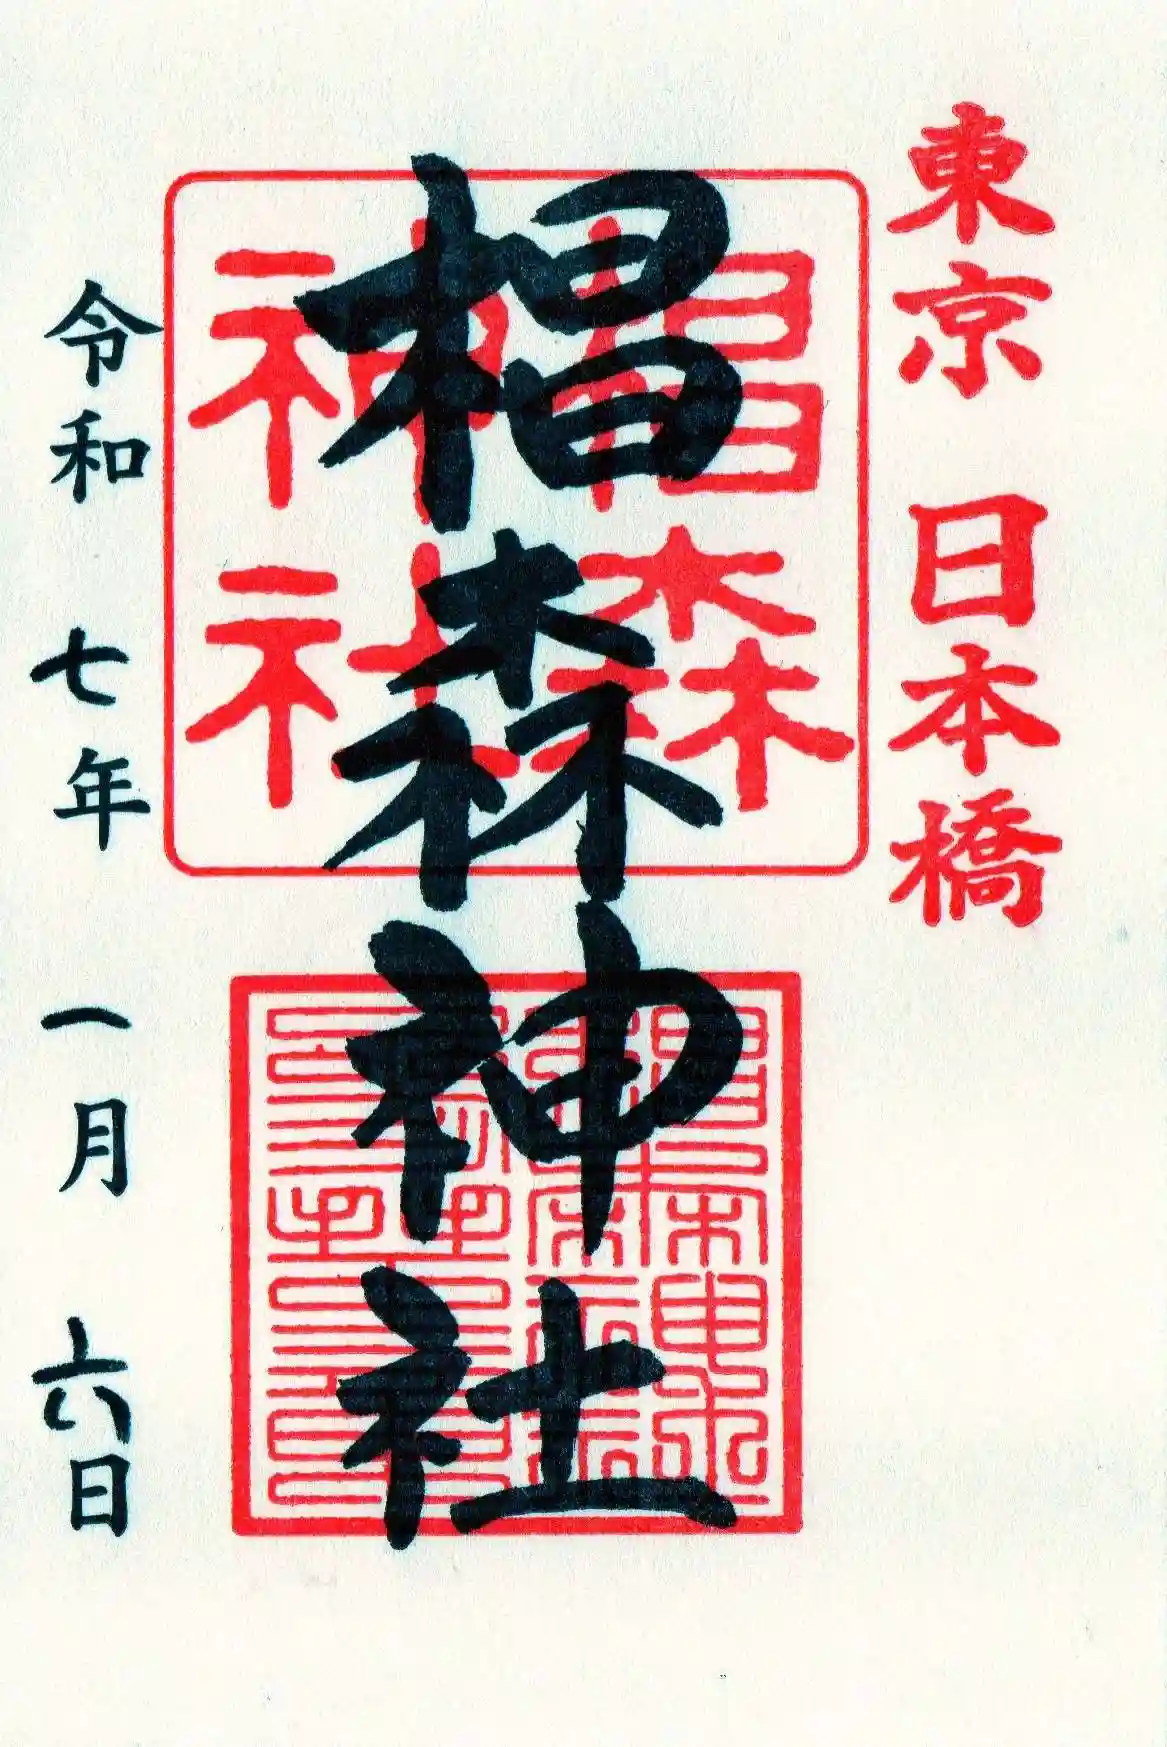 東京 日本橋
椙森神社
椙森
神社
令和 七年 一月 六日